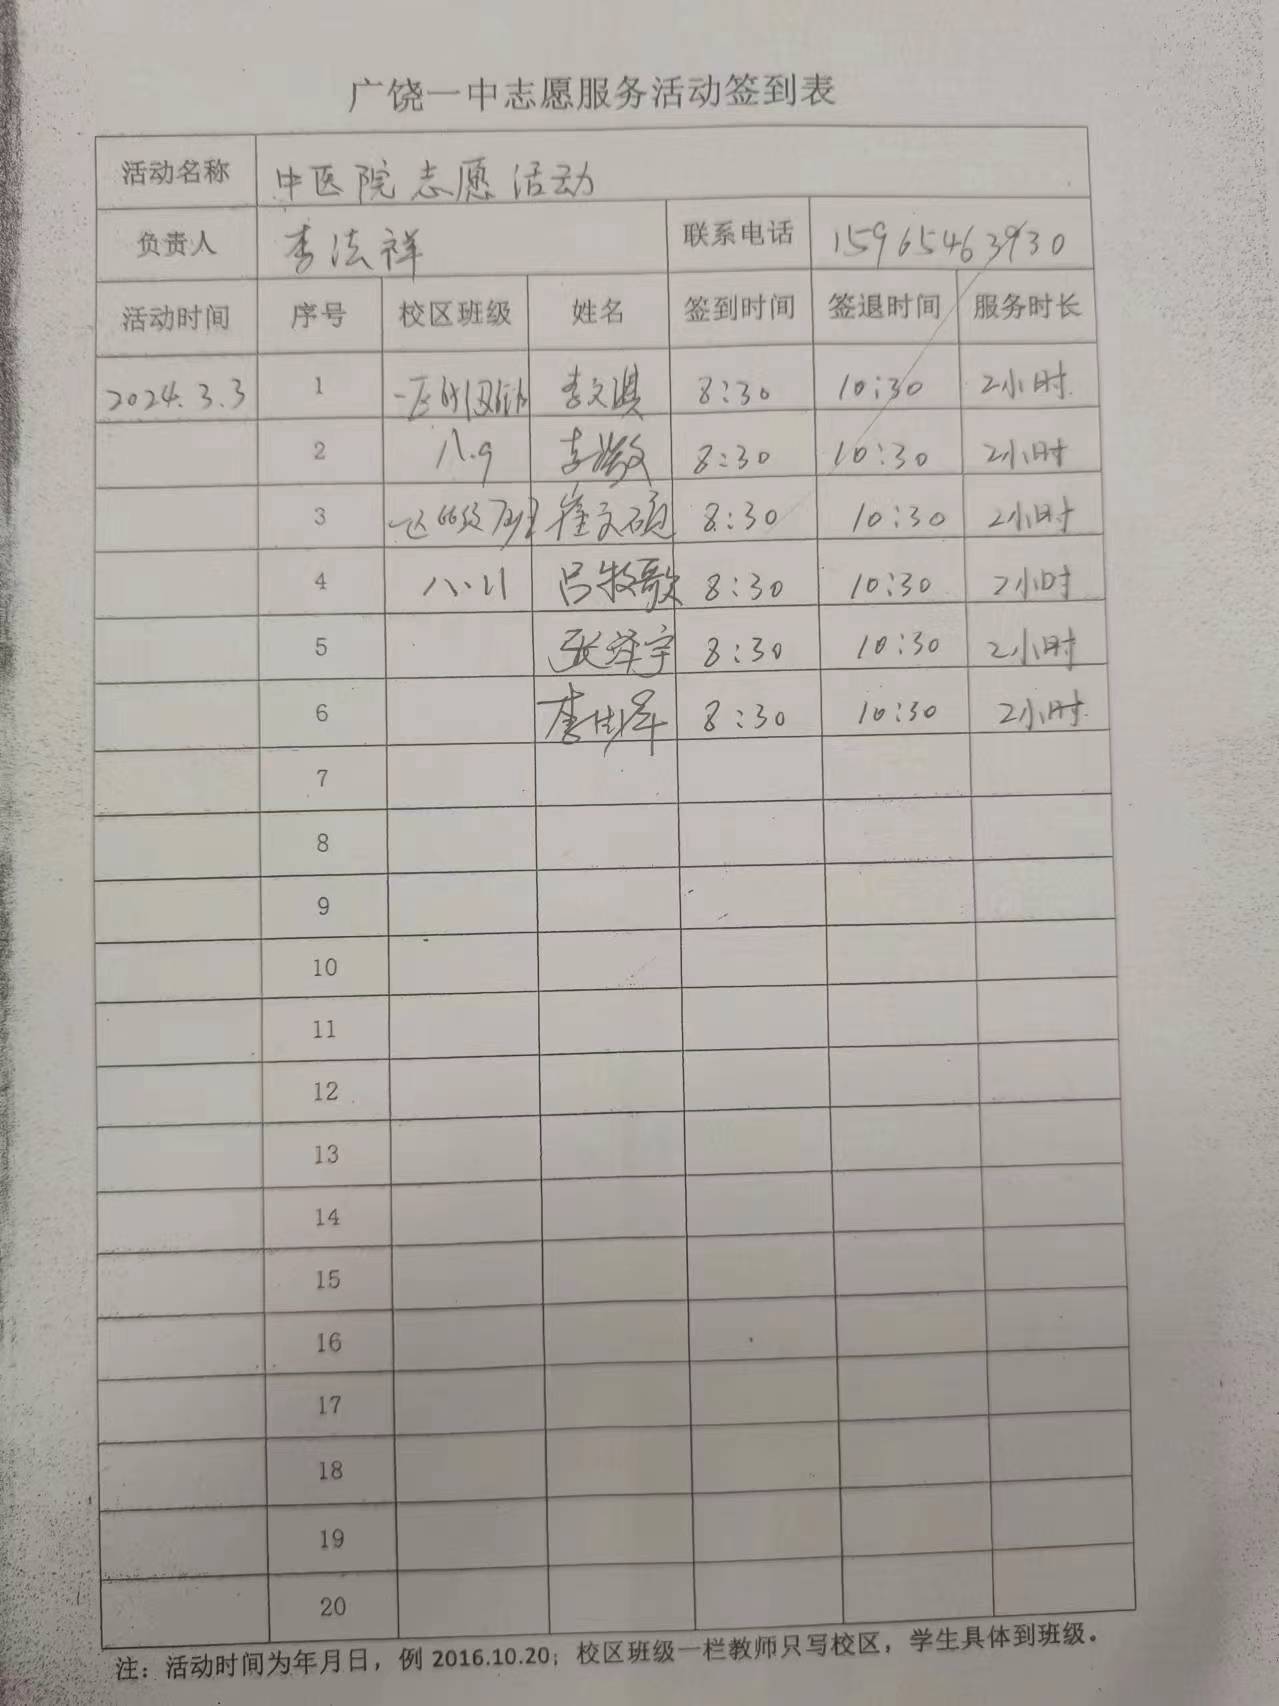 广饶一中志愿服务活动签到表
活动名称 中医院志愿活动
负责人 李法祥 联系电话 15965463930
活动时间 序号 校区班级 姓名 签到时间 签退时间 服务时长
2024.3.3 1 李文淇 8:30 10:30 2小时
2 八.9 8:30 10:30 2小时
3 崔文硕 8:30 10:30 2小时
4 八.11 吕牧歌 8:30 10:30 2小时
5 张泽宇 8:30 10:30 2小时
6 8:30 10:30 2小时
7
8
9
10
11
12
13
14
15
16
17
18
19
20
注：活动时间为年月日，例 2016.10.20；校区班级一栏教师只写校区，学生具体到班级。